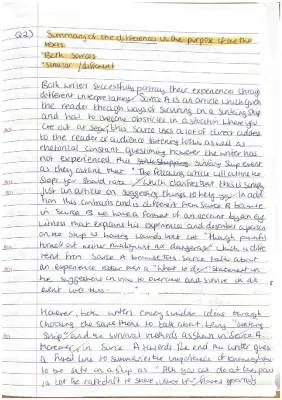 Q2) Summary of the differences in the purpose of the two
texts.
- Both sources
- similar / different
Both writers successfully portray their experiences through
different interpretations. Source A is an article which gives
the reader through ways of surviving on a sinking ship
and how to overcome obstacles in a situation where you
are out at sea, this source uses a lot of direct address
to the reader or audience listening to this as well as
rhetorical constant questioning however the writer has
not experienced this sinking ship event
as they outline that "The following article will outline the
steps you should take" which clarifies that this is simply
just an article on suggesting things to help you. In addi
tion this contrasts and is different from Source B because
in Source B we have a format of an account by an eye
witness that explains his experience and describes a person
on the ship as having wounds that are "though painful
himself but neither malignant nor dangerous" which is diffe
rent from Source A because this source talks about
an experience rather than a "what to do" statement in
the suggestions on how to overcome and survive in an
event like this.
However, both writers convey similar ideas through
choosing the same theme to talk about being "sinking
ship" and the survival methods as shown in Source A.
Moreover, in Source A towards the end the writer gives
a final line to summarise the importance of knowing how
to be safe on a ship as "All you can do at this point
is let the raft drift to shore